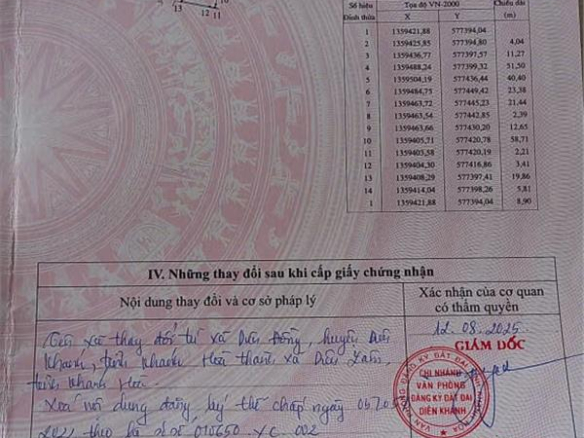 13 12 11 10
Số hiệu Đỉnh thửa Tọa độ VN-2000 Chiều dài (m)
X Y
1 1359421,88 577394,04
2 1359425,85 577394,80 4,04
3 1359436,77 577397,57 11,27
4 1359488,24 577399,32 51,50
5 1359504,19 577436,44 40,40
6 1359484,73 577449,42 23,38
7 1359463,72 577445,23 21,44
8 1359463,54 577442,85 2,39
9 1359463,66 577430,20 12,65
10 1359405,71 577420,78 58,71
11 1359403,58 577420,19 2,21
12 1359404,30 577416,86 3,41
13 1359408,29 577397,41 19,86
14 1359414,04 577398,26 5,81
1 1359421,88 577394,04 8,90
IV. Những thay đổi sau khi cấp giấy chứng nhận
Nội dung thay đổi và cơ sở pháp lý
Xác nhận của cơ quan
có thẩm quyền
Tên xã thay đổi từ xã Diên Đồng, huyện Diên
Khánh, tỉnh Khánh Hoà thành xã Diên Lâm,
tỉnh Khánh Hoà.
Xoá nội dung đăng ký thế chấp ngày
theo hồ sơ số 010650.XC.002
12.08.2025
GIÁM ĐỐC
VĂN PHÒNG ĐĂNG KÝ ĐẤT ĐAI TỈNH KHÁNH HÒA
CHI NHÁNH
VĂN PHÒNG
ĐĂNG KÝ ĐẤT ĐAI
DIÊN KHÁNH